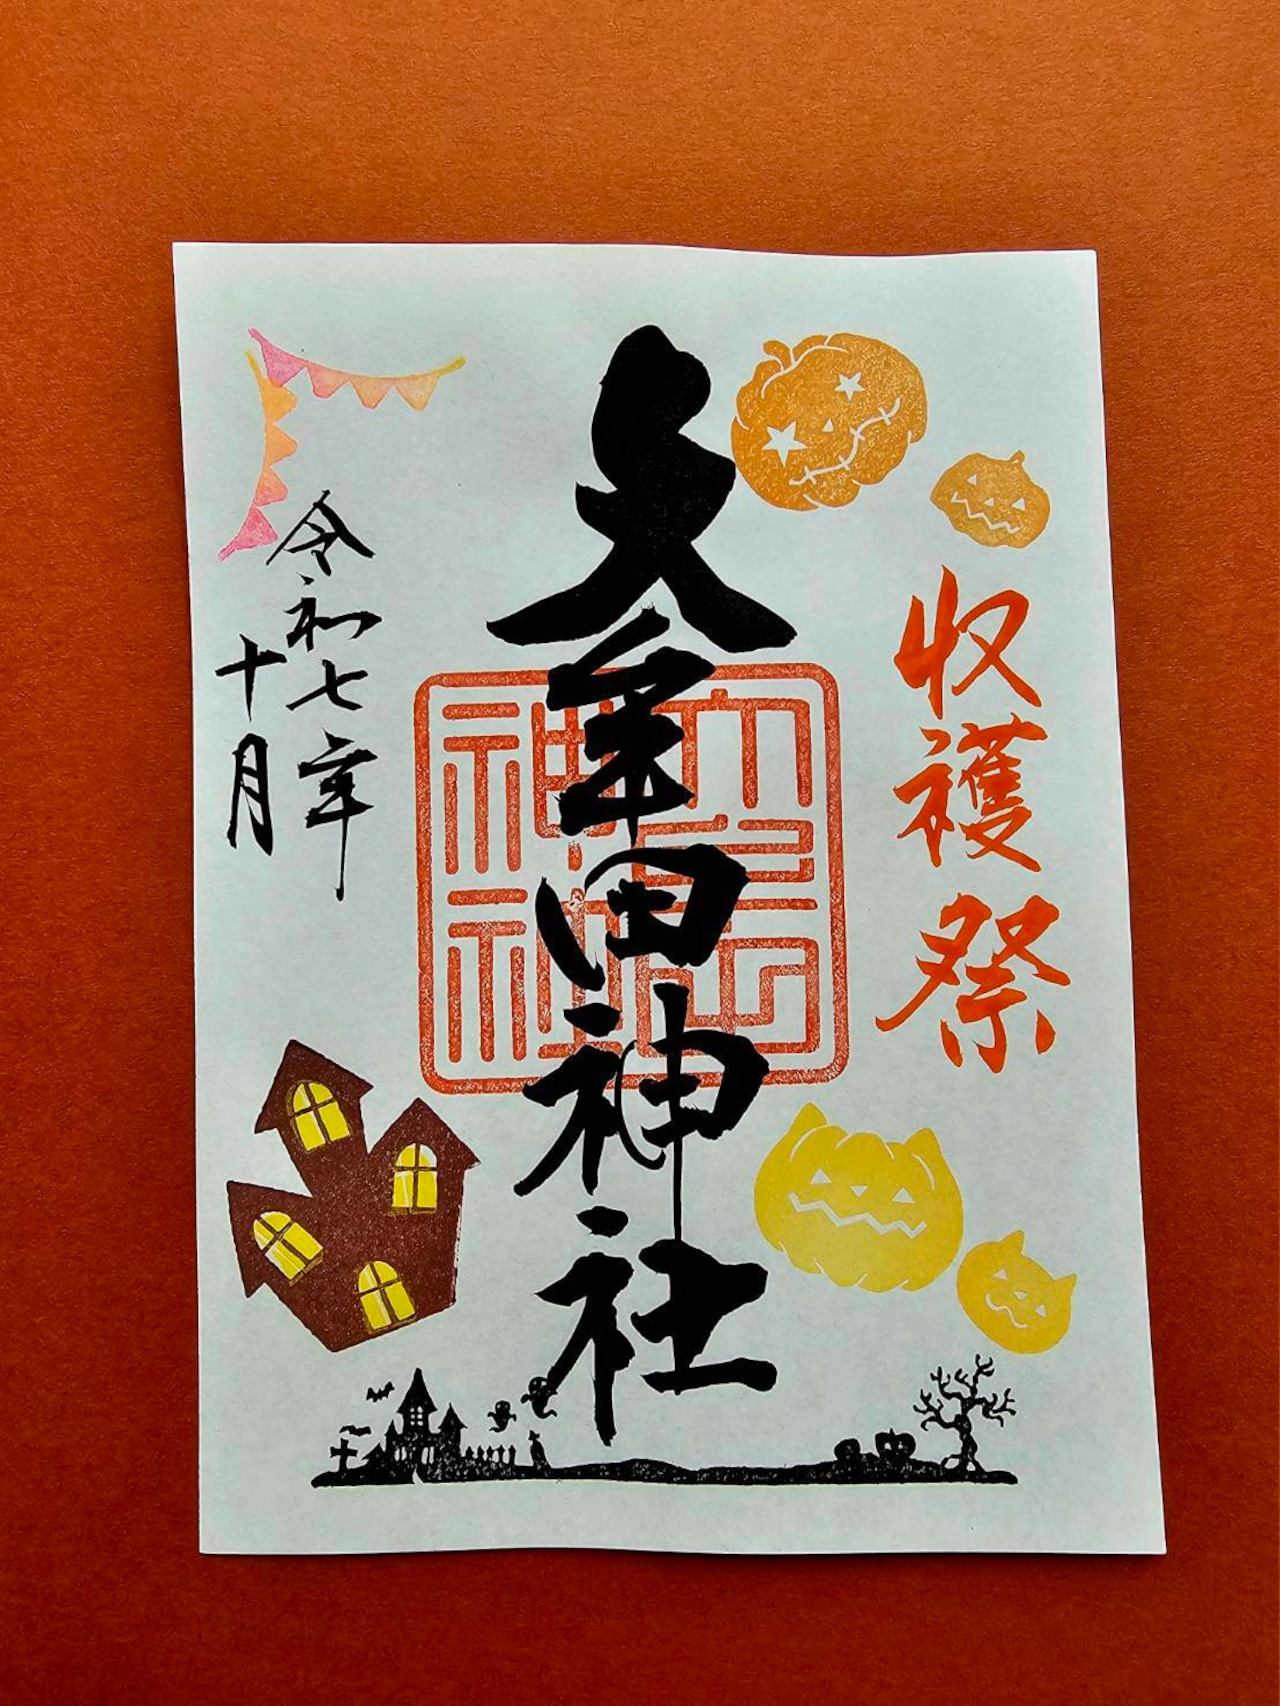 収穫祭
田神社
令和七年
十月